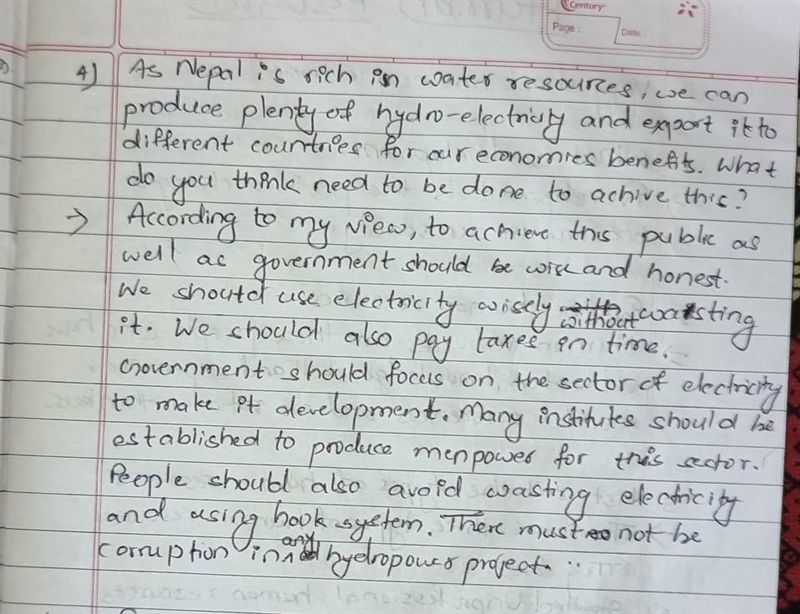 Century
Page :
Date :
4) As Nepal is rich in water resources, we can
produce plenty of hydro-electricity and export it to
different countries for our economics benefits. What
do you think need to be done to achive this?
→ According to my view, to achieve this public as
well as government should be wise and honest.
We should use electricity wisely without wasting
it. We should also pay taxes in time.
Government should focus on the sector of electricity
to make it development. Many institutes should be
established to produce menpower for this sector.
People should also avoid wasting electricity
and using hook system. There must not be
corruption in any hydropower project.